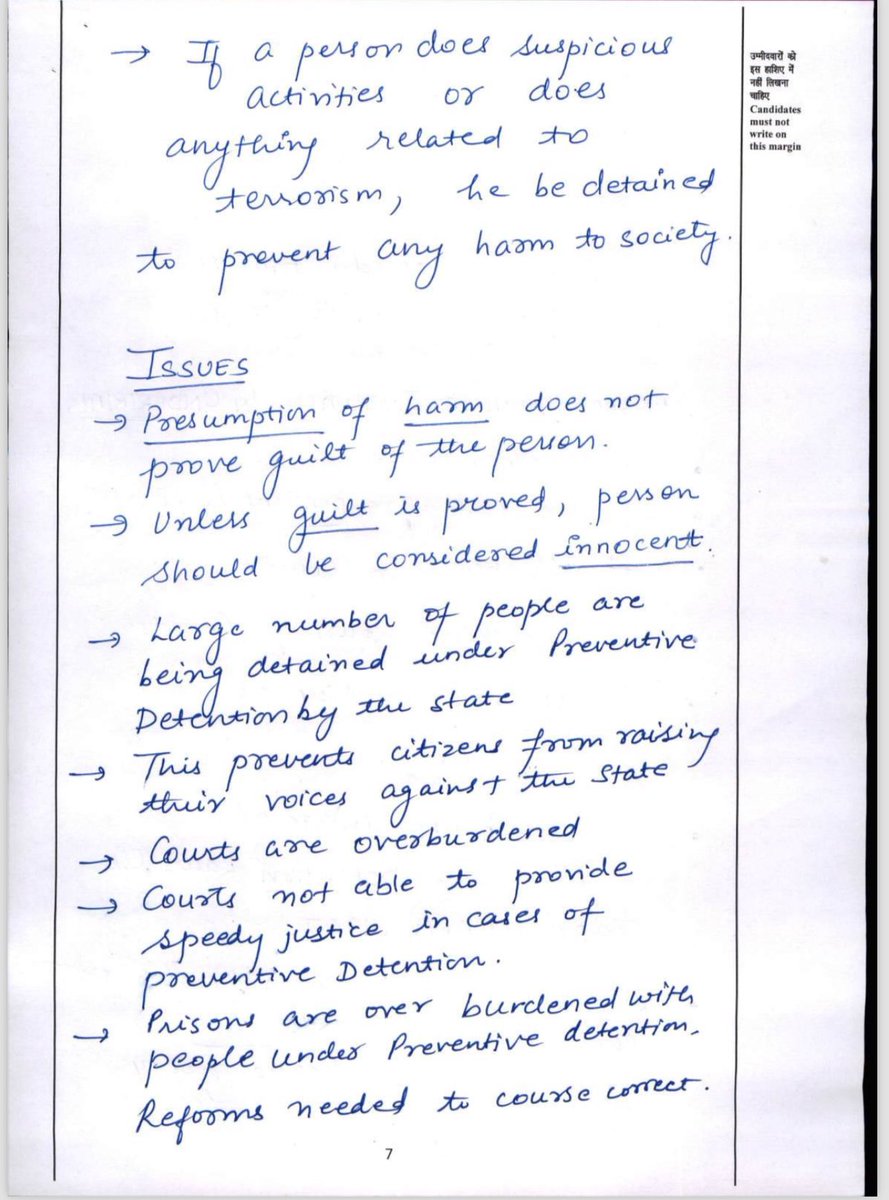 → If a person does suspicious
activities or does
anything related to
terrorism, he be detained
to prevent any harm to society.
ISSUES
→ Presumption of harm does not
prove guilt of the person.
→ Unless guilt is proved, person
should be considered innocent.
→ Large number of people are
being detained under Preventive
Detention by the state
→ This prevents citizens from raising
their voices against the State
→ Courts are overburdened
→ Courts not able to provide
speedy justice in cases of
preventive Detention.
→ Prisons are over burdened with
people under Preventive detention.
Reforms needed to course correct.
7
उम्मीदवारों को
इस हाशिए में
नहीं लिखना
चाहिए
Candidates
must not
write on
this margin